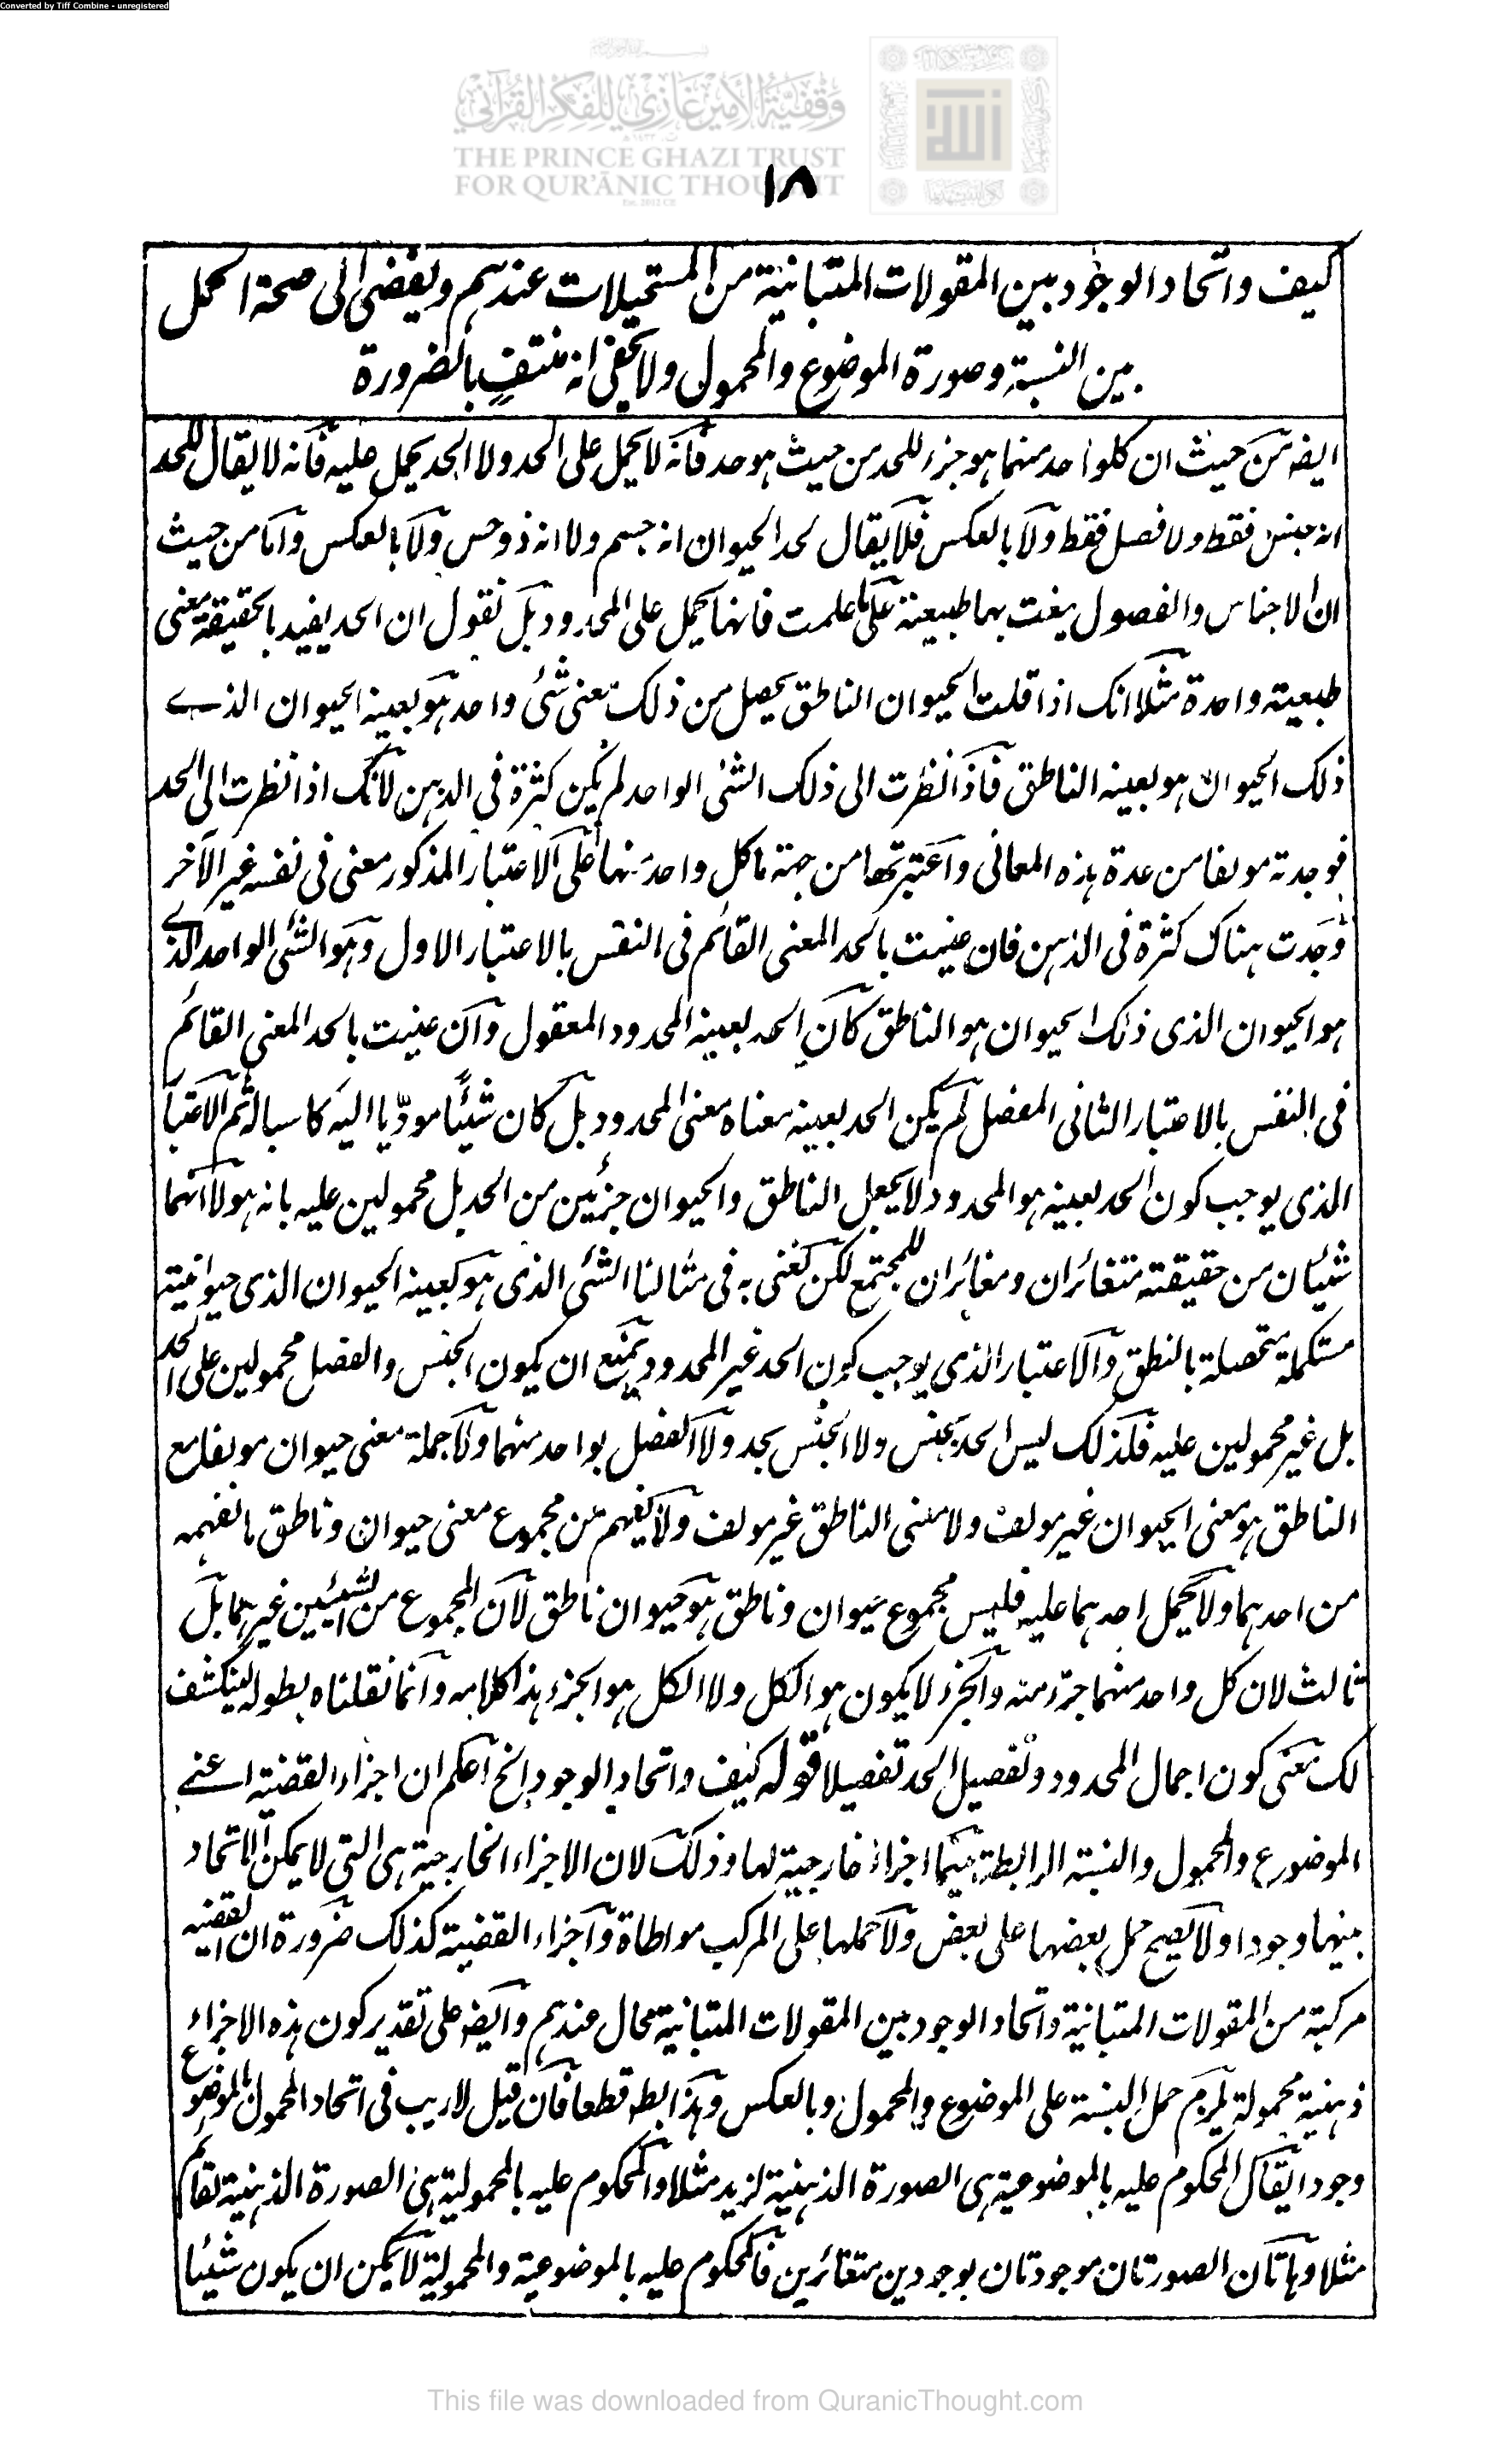 Converted by Tiff Combine - unregistered
وقفية الأمير غازي للفكر القرآني
THE PRINCE GHAZI TRUST
FOR QUR'ĀNIC THOUGHT
١٨
كيف واتحاد الوجود بين المقولات المتبانية من المستحيلات عندهم ويفضى الى صحة الحمل
بين النسبة وصورة الموضوع والمحمول ولا يخفى انه منتفٍ بالضرورة
ايضا من حيث ان كلواحد منهما هو جزء للحد من حيث هو حد فانه لا يحمل على الحد ولا الحد يحمل عليه فانه لا يقال للحد
انه جنس فقط ولا فصل فقط ولا بالعكس فلا يقال لحد الحيوان انه جسم ولا انه ذو حس ولا بالعكس واما من حيث
ان الاجناس والفصول يغت بها طبيعة على ما علمت فانها يحمل على المحدود بل نقول ان الحد يفيد بالحقيقة معنى
طبعية واحدة مثلا انك اذا قلت الحيوان الناطق يحصل من ذلك معنى شئ واحد هو بعينه الحيوان الذے
ذلك الحيوان هو بعينه الناطق فاذا نظرت الى ذلك الشئ الواحد لم يكن كثرة فى الذهن لانك اذا نظرت الى الحد
فوجدته مولفا من عدة هذه المعانى واعتبرتها من جهة ما كل واحد منها على الاعتبار المذكور معنى فى نفسه غير الآخر
وجدت هناك كثرة فى الذهن فان عنيت بالحد المعنى القائم فى النفس بالاعتبار الاول وهو الشئ الواحد الذے
هو الحيوان الذى ذلك الحيوان هو الناطق كان الحد بعينه المحدود المعقول وان عنيت بالحد المعنى القائم
فى النفس بالاعتبار الثانى المفصل لم يكن الحد بعينه معناه معنى المحدود بل كان شيئًا مودّيا اليه كاسبا له ثم الاعتبا
الذى يوجب كون الحد بعينه هو المحدود لا يجعل الناطق والحيوان جزئين من الحد بل محمولين عليه بانه هو لا انهما
شيئان من حقيقة متغائران ومغائران للمجتمع لكن نعنى به فى مثالنا الشئ الذى هو بعينه الحيوان الذى حيوانية
مستكملة متحصلة بالنطق والاعتبار الذى يوجب كون الحد غير المحدود يمنع ان يكون الجنس والفصل محمولين على الحد
بل غير محمولين عليه فلذلك ليس الحد بجنس ولا الجنس بحد ولا الفصل بواحد منهما ولا جملة معنى حيوان مولفا مع
الناطق هو معنى الحيوان غير مولف ولا معنى الناطق غير مولف ولا يفهم من مجموع معنى حيوان وناطق ما نفهمه
من احدهما ولا يحمل احدهما عليه فليس مجموع حيوان وناطق هو حيوان ناطق لان المجموع من الشيئين غيرهما بل
ثالث لان كل واحد منهما جزء منه والجزء لا يكون هو الكل ولا الكل هو الجزء هذا كلامه وانما نقلناه بطوله لينكشف
لك معنى كون اجمال المحدود وتفصيل الحد تفصيلا قوله كيف واتحاد الوجود الخ اعلم ان اجزاء القضية اعنے
الموضوع والمحمول والنسبة الرابطة بينهما اجزاء خارجية لها وذلك لان الاجزاء الخارجية هى التى لا يمكن الاتحاد
بينها وجودا ولا يصح حمل بعضها على بعض ولا حملها على المركب مواطاة واجزاء القضية كذلك ضرورة ان القضية
مركبة من المقولات المتبانية واتحاد الوجود بين المقولات المتبانية محال عندهم وايضا على تقدير كون هذه الاجزاء
ذهنية محمولة يلزم حمل النسبة على الموضوع والمحمول وبالعكس وهذا بط قطعا فان قيل لا ريب فى اتحاد المحمول بالموضوع
وجودا يقال المحكوم عليه بالموضوعية هى الصورة الذهنية لزيد مثلا والمحكوم عليه بالمحمولية هى الصورة الذهنية لقائم
مثلا وهاتان الصورتان موجودتان بوجودين متغائرين فالمحكوم عليه بالموضوعية والمحمولية لا يمكن ان يكون شيئا
This file was downloaded from QuranicThought.com